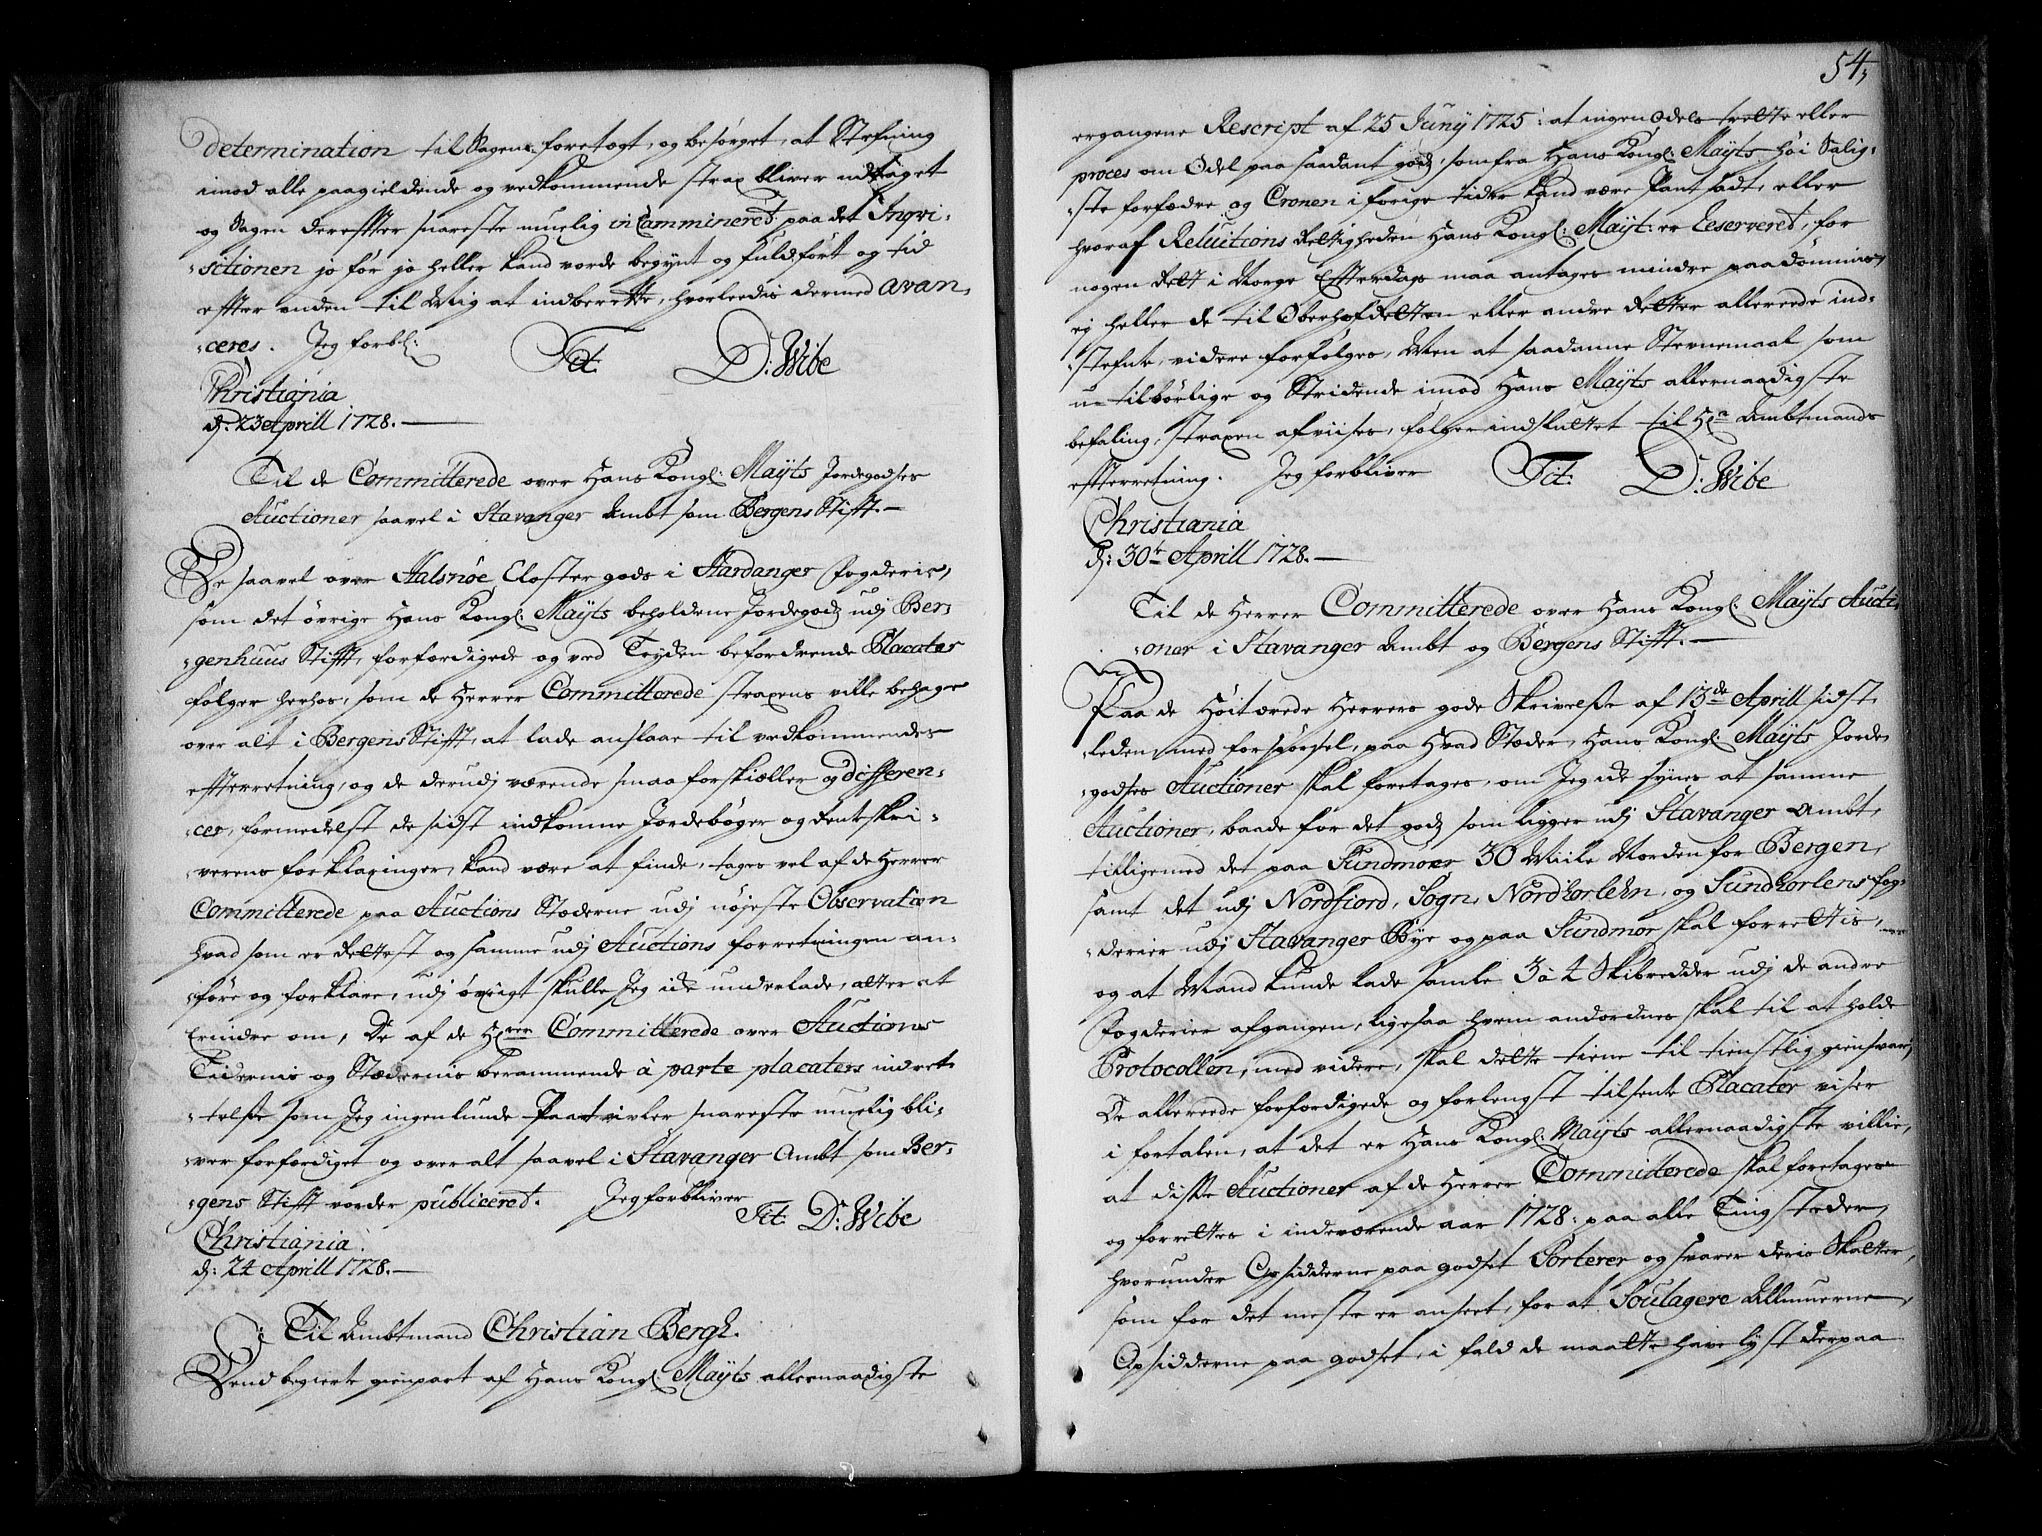 determination til Sagens foretagt, og besørget, at Stefning
imod alle paagieldende og vedkommende strax bliver udtaget
og Sagen dereffter snareste muelig in Cammineret paa det Inqvi-
-sitionen jo før jo heller kand vorde begynt og fuldført og tid
effter anden til Mig at indberette, hvorleedis dermed avan-
-ceres. Jeg forbl:
Tit. D: Wibe
Christiania
d: 23 Aprill 1728.
Til de Committerede over Hans Kongl: Mayts Jordegodses
Auctioner saavel i Stavanger Ambt som Bergens Stifft.
De saavel over Halsnøe Closter gods i Hardanger Fogderie,
som det øvrige Hans Kongl: Mayts beholdene Jordegodz udj Ber-
-genhuus Stifft, forferdigede og ved Trykken befordrende Placater
følger herhos, som de Herrer Committerede straxens ville behage
over alt i Bergens Stifft, at lade anslaae til vedkommendes
effterretning, og de derudj værende smaa forskiæller og differen-
-cer, formedelst de sidst indkomne Jordebøger og Renteskri-
-verens forklaringer, kand være at finde, tages vel af de Herrer
Committerede paa Auctions Stæderne udj nøjeste Observation
hvad som er rettest og samme udj Auctions forretningen an-
-føre og forklare, udj øvrigt skulle Jeg icke underlade, atter at
Erindre om, De af de Hrrer Committerede over Auctions
Tidernis og Stædernis berammende à parte placaters indrett
-telse som Jeg ingenlunde Paatvivler snareste muelig bli-
-ver forferdiget og over alt saavel i Stavanger Ambt som Ber-
-gens Stifft vorder publiceret. Jeg forbliver
Tit. D: Wibe
Christiania
d: 24 Aprill 1728.
Til Ambtmand Christian Bergh.
Vend begierte gienpart af Hans Kongl: Mayts allernaadigste
54,
ergangene Rescript af 25 Junij 1725: at ingen Odels trette eller
proces om Odel paa saadant godz, som fra Hans Kongl: Mayts høi Salig-
-ste forfædre og Cronen i forige tider kand være Pantsadt, eller
hvoraf Reluitions Rettigheden Hans Kongl: Mayt: er Reserveret, for
nogen Rett i Norge Effterdags maa antages mindre paadømmis,
ej heller de til Oberhofretten eller andre Retter allereede ind-
-stefnte, videre forfølges, Men at saadanne Stevnemaal som
u-tilbørlige og Stridende imod Hans Mayts allernaadigste
befaling, straxen afviises, følger indsluttet til Hr Ambtmands
effterretning. Jeg forbliver Tit: D: Wibe
Christiania
d: 30te Aprill 1728.
Til de Herrer Committerede over Hans Kongl: Mayts Aucti-
-oner i Stavanger Ambt og Bergens Stifft.
Paa de Høitærede Herrers gode Skrivelse af 13de Aprill sidst
leden, med forspørsel, paa Hvad Stæder, Hans Kongl: Mayts Jorde-
-godses Auctioner skal foretages, om Jeg icke synes at samme
Auctioner, baade for det godz som ligger udj Stavanger Ambt,
tilligemed det paa Sundmøer 30 Miile Norden for Bergen,
samt det udj Nordfiord, Sogn, Nordhorlehn, og Sundhorlens Fog-
-derier udj Stavanger Bye og paa Sundmør skal forrettis,
og at Mand kunde lade samle 3 à 4 Skibredder udj de andre
Fogderier afgangen, ligesaa hvem andordnes skal til at holde
Protocollen, med videre, skal dette tiene til tienstlig giensvar,
De allereede forferdigede og forlengst tilsente Placater viser
i fortalen, at det er Hans Kongl: Mayts allernaadigste villie,
at disse Auctioner af de Herrer Committerede skal foretages
og forrettes i indeværende aar 1728: paa alle Tingstæder,
hvorunder Opsidderne paa godset Sorterer og svarer deris Skatter,
som for det meste er anseet, for at Soulagere Allmuerne,
Opsidderne paa godset, i fald de maatte have lyst derpaa